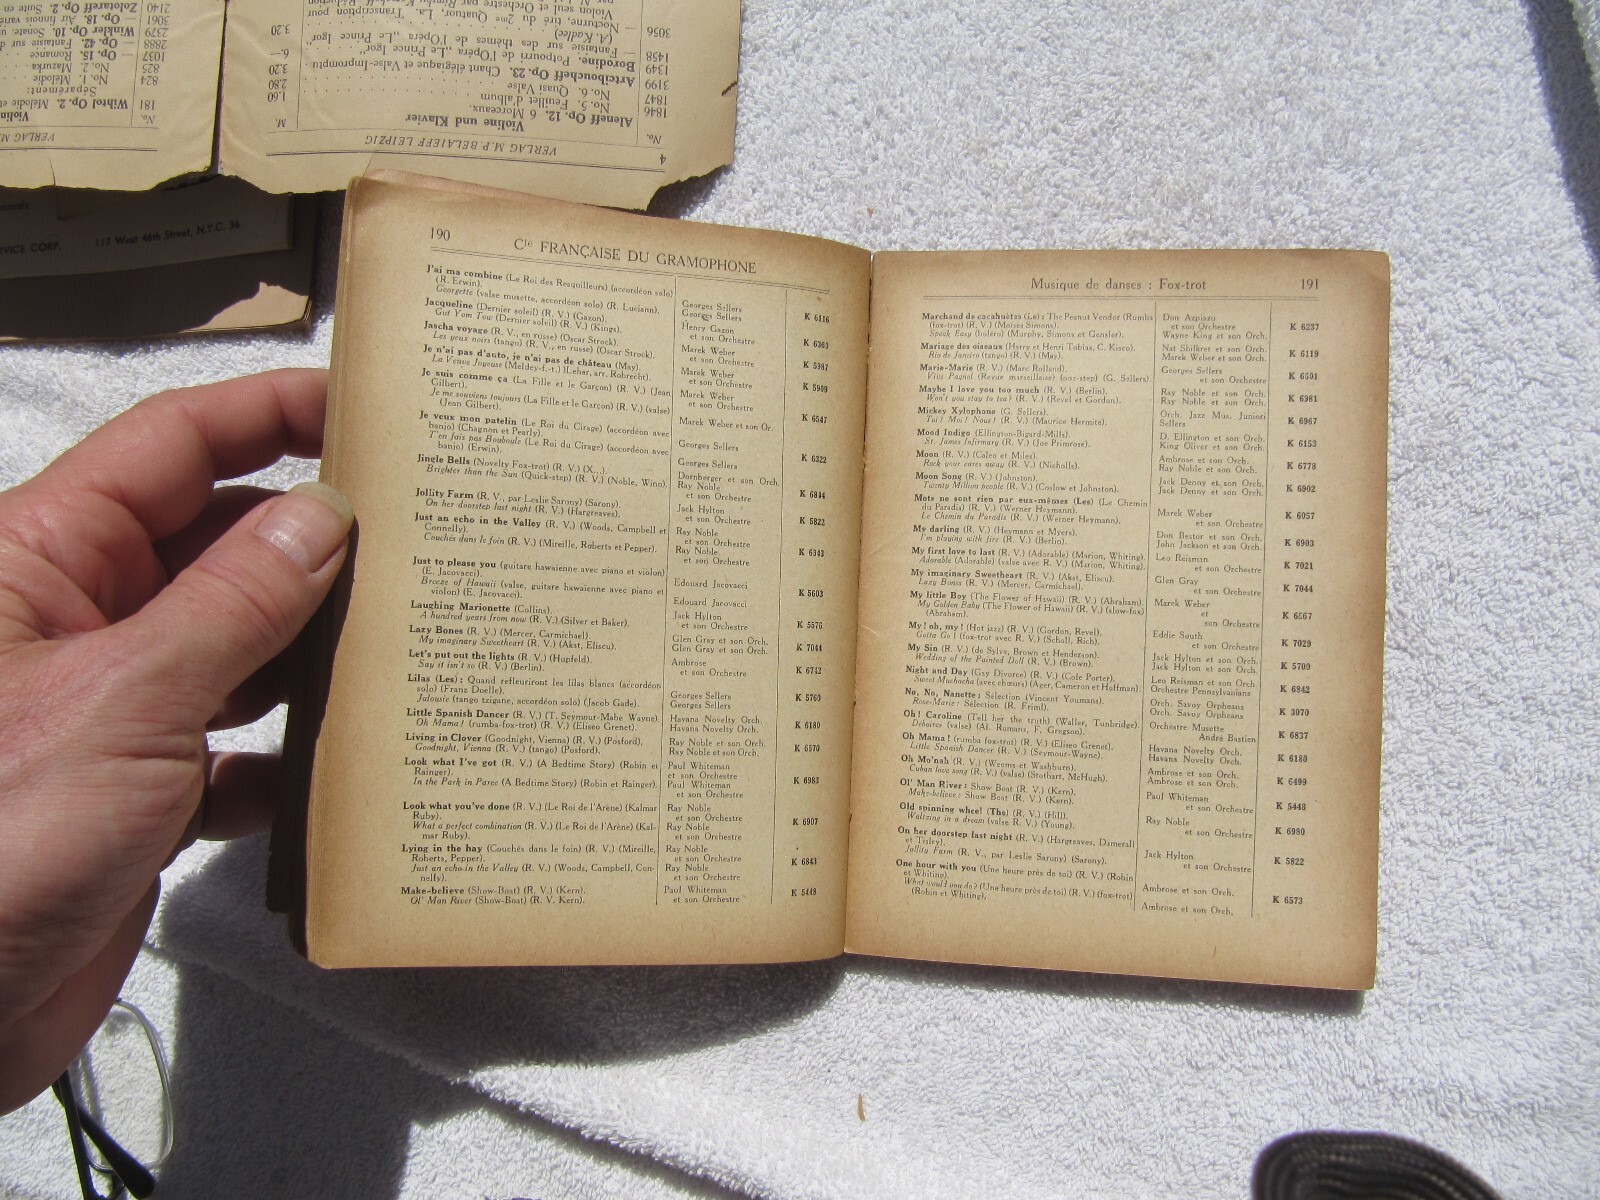 190
Cie FRANÇAISE DU GRAMOPHONE
J'ai ma combine (Le Roi des Resquilleurs) (accordéon solo)
(R. Erwin).
Georgette (valse musette, accordéon solo) (R. Luciann).
Georges Sellers
Georges Sellers
K 6116
Jacqueline (Dernier soleil) (R. V.) (Gazon).
Gut Yom Tow (Dernier soleil) (R. V.) (Kings).
Henry Gazon
et son Orchestre
K 6360
Jascha voyage (R. V., en russe) (Oscar Strock).
Les yeux noirs (tango) (R. V., en russe) (Oscar Strock).
Marek Weber
et son Orchestre
K 5987
Je n'ai pas d'auto, je n'ai pas de château (May).
La Veuve Joyeuse (Meldey-f.-t.) (Lehar, arr. Robrecht).
Marek Weber
et son Orchestre
K 5909
Je suis comme ça (La Fille et le Garçon) (R. V.) (Jean
Gilbert).
Je me souviens toujours (La Fille et le Garçon) (R. V.) (valse)
(Jean Gilbert).
Marek Weber
et son Orchestre
Marek Weber et son Or.
K 6547
Je veux mon patelin (Le Roi du Cirage) (accordéon avec
banjo) (Chagnon et Pearly).
T'en fais pas Bouboule (Le Roi du Cirage) (accordéon avec
banjo) (Erwin).
Georges Sellers
Georges Sellers
K 6322
Jingle Bells (Novelty Fox-trot) (R. V.) (X...).
Brighter than the Sun (Quick-step) (R. V.) (Noble, Winn).
Dornberger et son Orch.
Ray Noble
et son Orchestre
K 6844
Jollity Farm (R. V., par Leslie Sarony) (Sarony).
On her doorstep last night (R. V.) (Hargreaves).
Jack Hylton
et son Orchestre
K 5822
Just an echo in the Valley (R. V.) (Woods, Campbell et
Connelly).
Couchés dans le foin (R. V.) (Mireille, Roberts et Pepper).
Ray Noble
et son Orchestre
Ray Noble
et son Orchestre
K 6343
Just to please you (guitare hawaïenne avec piano et violon)
(E. Jacovacci).
Breeze of Hawaii (valse, guitare hawaïenne avec piano et
violon) (E. Jacovacci).
Edouard Jacovacci
Edouard Jacovacci
K 5603
Laughing Marionette (Collins).
A hundred years from now (R. V.) (Silver et Baker).
Jack Hylton
et son Orchestre
K 5576
Lazy Bones (R. V.) (Mercer, Carmichael).
My imaginary Sweetheart (R. V.) (Akst, Eliscu).
Glen Gray et son Orch.
Glen Gray et son Orch.
K 7044
Let's put out the lights (R. V.) (Hupfeld).
Say it isn't so (R. V.) (Berlin).
Ambrose
et son Orchestre
K 6742
Lilas (Les) : Quand refleuriront les lilas blancs (accordéon
solo) (Franz Doelle).
Jalousie (tango tzigane, accordéon solo) (Jacob Gade).
Georges Sellers
Georges Sellers
K 5760
Little Spanish Dancer (R. V.) (T. Seymour-Mabe Wayne)
Oh Mama ! (rumba-fox-trot) (R. V.) (Eliseo Grenet).
Havana Novelty Orch.
Havana Novelty Orch.
K 6180
Living in Clover (Goodnight, Vienna) (R. V.) (Posford).
Goodnight, Vienna (R. V.) (tango) (Posford).
Ray Noble et son Orch.
Ray Noble et son Orch.
K 6570
Look what I've got (R. V.) (A Bedtime Story) (Robin et
Rainger).
In the Park in Paree (A Bedtime Story) (Robin et Rainger)
Paul Whiteman
et son Orchestre
Paul Whiteman
et son Orchestre
K 6983
Look what you've done (R. V.) (Le Roi de l'Arène) (Kalmar
Ruby).
What a perfect combination (R. V.) (Le Roi de l'Arène) (Kal-
mar Ruby).
Ray Noble
et son Orchestre
Ray Noble
et son Orchestre
K 6907
Lying in the hay (Couchés dans le foin) (R. V.) (Mireille,
Roberts, Pepper).
Just an echo in the Valley (R. V.) (Woods, Campbell, Con-
nelly).
Ray Noble
et son Orchestre
Ray Noble
et son Orchestre
K 6843
Make-believe (Show-Boat) (R. V.) (Kern).
Ol' Man River (Show-Boat) (R. V. Kern).
Paul Whiteman
et son Orchestre
K 5448
Musique de danses : Fox-trot
191
Marchand de cacahuètes (Le) : The Peanut Vendor (Rumba
(fox-trot) (R. V.) (Moïses Simons).
Speak Easy (boléro) (Murphy, Simons et Gensler).
Don Azpiazu
et son Orchestre
Wayne King et son Orch.
K 6237
Mariage des oiseaux (Harry et Henri Tobias, C. Kisco).
Rio de Janeiro (tango) (R. V.) (May).
Nat Shilkret et son Orch.
Marek Weber et son Orch.
K 6119
Marie-Marie (R. V.) (Marc Rolland).
Vive Pagnol (Revue marseillaise) (one-step) (G. Sellers).
Georges Sellers
et son Orchestre
K 6501
Maybe I love you too much (R. V.) (Berlin).
Won't you stay to tea? (R. V.) (Revel et Gordon).
Ray Noble et son Orch.
Ray Noble et son Orch.
K 6981
Mickey Xylophone (G. Sellers).
Toi ! Moi ! Nous ! (R. V.) (Maurice Hermite).
Orch. Jazz Mus. Juniori
Sellers
K 6967
Mood Indigo (Ellington-Bigard-Mills).
St. James Infirmary (R. V.) (Joe Primrose).
D. Ellington et son Orch.
King Oliver et son Orch.
K 6153
Moon (R. V.) (Caleo et Miles).
Rock your cares away (R. V.) (Nicholls).
Ambrose et son Orch.
Ray Noble et son Orch.
K 6778
Moon Song (R. V.) (Johnston).
Twenty Million people (R. V.) (Coslow et Johnston).
Jack Denny et son Orch.
Jack Denny et son Orch.
K 6902
Mots ne sont rien par eux-mêmes (Les) (Le Chemin
du Paradis) (R. V.) (Werner Heymann).
Le Chemin du Paradis (R. V.) (Werner Heymann).
Marek Weber
et son Orchestre
K 6057
My darling (R. V.) (Heymann et Myers).
I'm playing with fire (R. V.) (Berlin).
Don Bestor et son Orch.
John Jackson et son Orch.
K 6903
My first love to last (R. V.) (Adorable) (Marion, Whiting).
Adorable (Adorable) (valse avec R. V.) (Marion, Whiting).
Leo Reisman
et son Orchestre
K 7021
My imaginary Sweetheart (R. V.) (Akst, Eliscu).
Lazy Bones (R. V.) (Mercer, Carmichael).
Glen Gray
et son Orchestre
K 7044
My little Boy (The Flower of Hawaii) (R. V.) (Abraham).
My Golden Baby (The Flower of Hawaii) (R. V.) (slow-fox)
(Abraham).
Marek Weber
et
son Orchestre
K 6567
My ! oh, my ! (Hot jazz) (R. V.) (Gordon, Revel).
Gotta Go ! (fox-trot avec R. V.) (Scholl, Rich).
Eddie South
et son Orchestre
K 7029
My Sin (R. V.) (de Sylva, Brown et Henderson).
Wedding of the Painted Doll (R. V.) (Brown).
Jack Hylton et son Orch.
Jack Hylton et son Orch.
K 5709
Night and Day (Gay Divorce) (R. V.) (Cole Porter).
Sweet Muchacha (avec chœurs) (Ager, Cameron et Hoffman).
Leo Reisman et son Orch.
Orchestre Pennsylvanians
K 6842
No, No, Nanette : Sélection (Vincent Youmans).
Rose-Marie : Sélection (R. Friml).
Orch. Savoy Orpheans
Orch. Savoy Orpheans
K 3070
Oh ! Caroline (Tell her the truth) (Waller, Tunbridge).
Déboires (valse) (Al. Romans, F. Gregson).
Orchestre Musette
André Bastien
K 6837
Oh Mama ! (rumba fox-trot) (R. V.) (Eliseo Grenet).
Little Spanish Dancer (R. V.) (Seymour-Wayne).
Havana Novelty Orch.
Havana Novelty Orch.
K 6180
Oh Mo'nah (R. V.) (Weems et Washburn).
Cuban love song (R. V.) (valse) (Stothart, McHugh).
Ambrose et son Orch.
Ambrose et son Orch.
K 6499
Ol' Man River : Show Boat (R. V.) (Kern).
Make-believe : Show Boat (R. V.) (Kern).
Paul Whiteman
et son Orchestre
K 5448
Old spinning wheel (The) (R. V.) (Hill).
Waltzing in a dream (valse R. V.) (Young).
Ray Noble
et son Orchestre
K 6980
On her doorstep last night (R. V.) (Hargreaves, Damerall
et Tisley).
Jollity Farm (R. V., par Leslie Sarony) (Sarony).
Jack Hylton
et son Orchestre
K 5822
One hour with you (Une heure près de toi) (R. V.) (Robin
et Whiting).
What would you do? (Une heure près de toi) (R. V.) (fox-trot)
(Robin et Whiting).
Ambrose et son Orch.
Ambrose et son Orch.
K 6573
4
VERLAG M.P. BELAIEFF LEIPZIG
No.
Violine und Klavier
M.
Aleneff Op. 12. 6 Morceaux.
1846
No. 5. Feuillet d'album
1.60
1847
No. 6. Quasi Valse
2.80
3199
Artciboucheff Op. 23. Chant élégiaque et Valse-Impromptu
3.20
1349
Borodine. Potpourri de l'Opéra „Le Prince Igor"
6.—
1458
— Fantaisie sur des thèmes de l'Opéra „Le Prince Igor"
(A. Kadlec)
3.20
3056
— Nocturne, tiré du 2me Quatuor, La. Transcription pour
Violon seul et Orchestre par
VERLAG M.
No.
181
Wihtol Op. 2. Mélodie et
Séparément:
824
No. 1. Mélodie
825
No. 2. Mazurka
1037
— Op. 15. Romance
2888
— Op. 42. Fantaisie sur
2379
Winkler Op. 10. Sonate,
3061
— Op. 18. Air finnois varié
2140
Zolotareff Op. 2. Suite en
VICE CORP.
117 West 46th Street, N.Y.C. 36